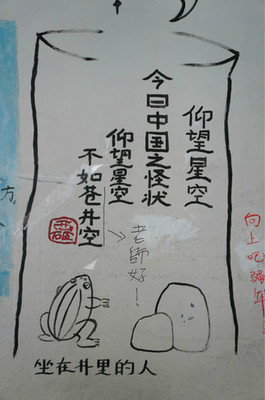 仰望星空
今日中国之怪状
仰望星空
不如苍井空
老師好！
坐在井里的人
向上
方,